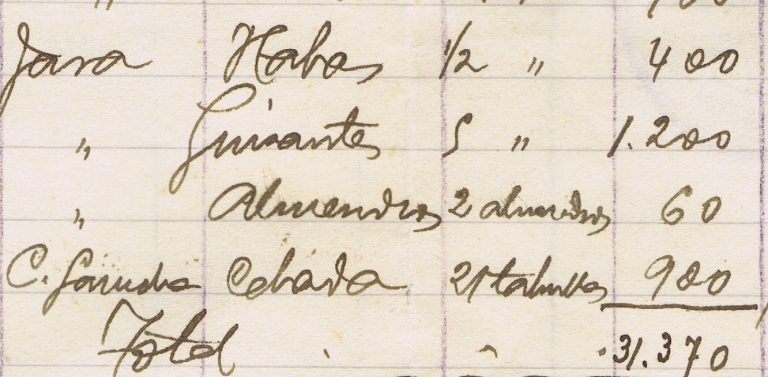 Jara Habas 1/2 " 400
" Guisantes 5 " 1.200
" Almendros 2 almendros 60
C. Cebada 21 tahullas 900
Total 31.370